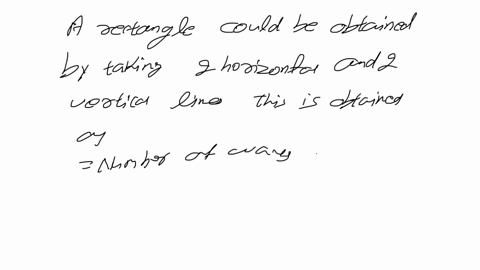 A rectangle could be obtained
by taking 2 horizontal and 2
vertical line this is obtained
as
=Number of ways